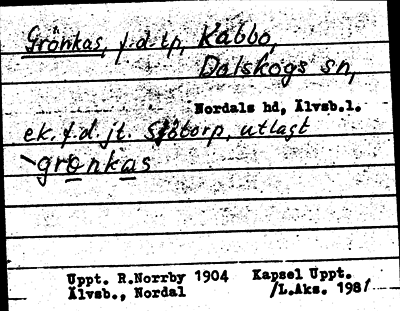 Grönkas, f.d. tp, Kabbo,
Dalskogs sn,
Nordals hd, Älvsb.l.
ek. f.d. jt. Sjötorp, utlagt
`grönkas
Uppt. R.Norrby 1904 Kapsel Uppt.
Älvsb., Nordal /L.Aks. 1981